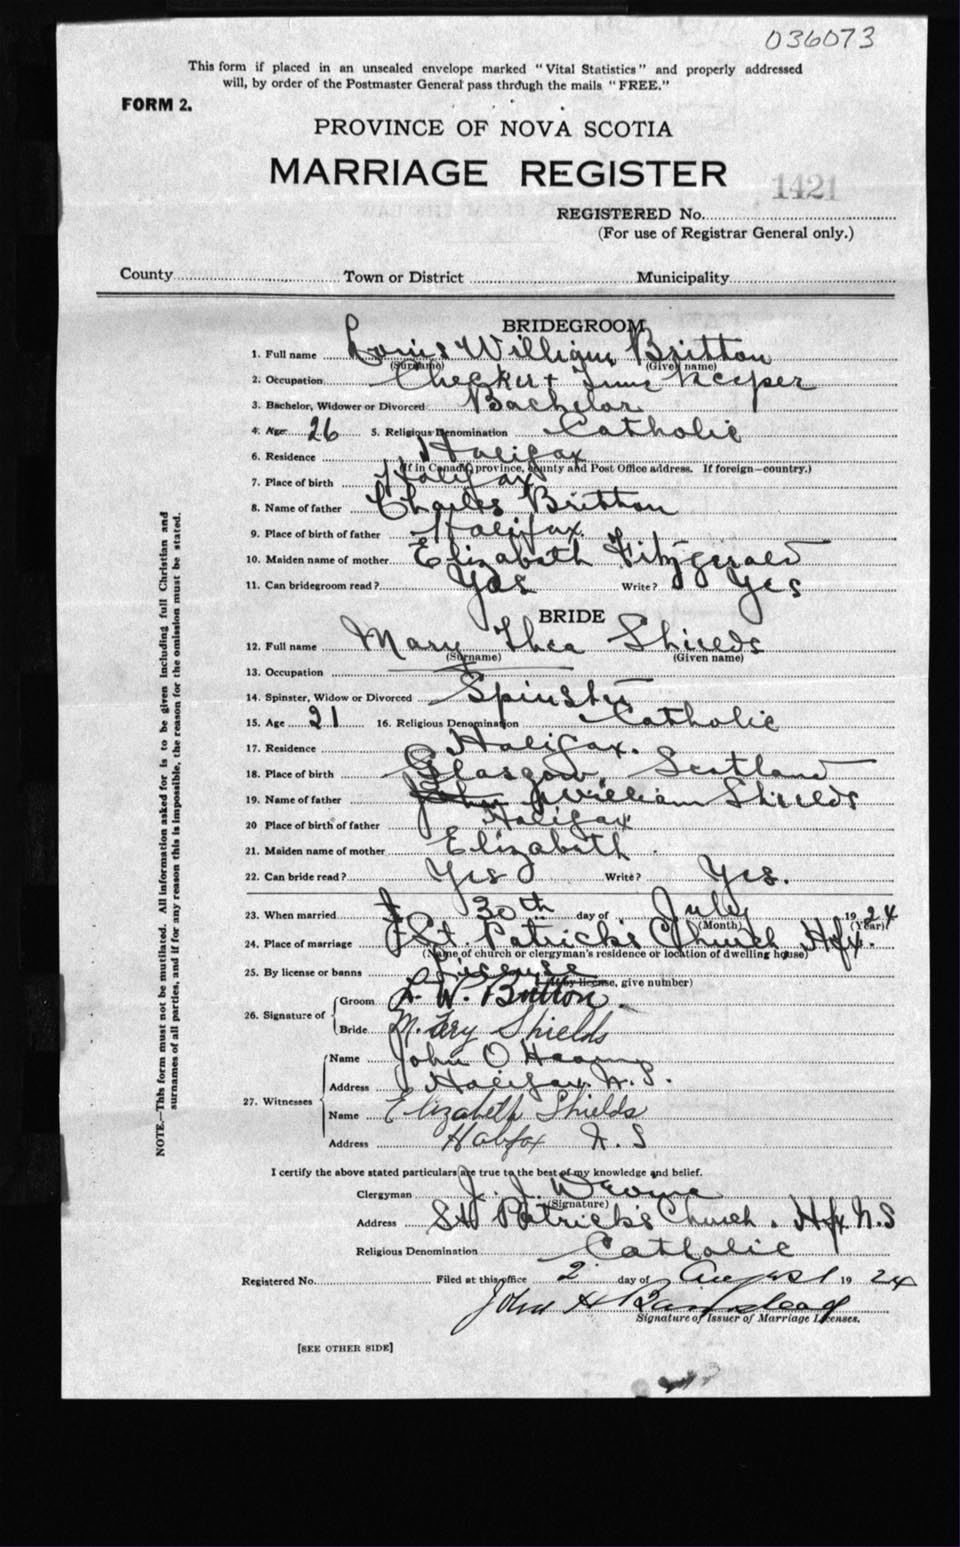 036073
This form if placed in an unsealed envelope marked "Vital Statistics" and properly addressed
will, by order of the Postmaster General pass through the mails "FREE."
FORM 2.
PROVINCE OF NOVA SCOTIA
MARRIAGE REGISTER
1421
REGISTERED No.
(For use of Registrar General only.)
County Town or District Municipality
BRIDEGROOM
1. Full name Louis William Britton
(Surname) (Given name)
2. Occupation Checker + Time Keeper
3. Bachelor, Widower or Divorced Bachelor
4. Age 26 5. Religious Denomination Catholic
6. Residence Halifax
(If in Canada, province, county and Post Office address. If foreign—country.)
7. Place of birth Halifax
8. Name of father Charles Britton
9. Place of birth of father Halifax
10. Maiden name of mother Elizabeth Fitzgerald
11. Can bridegroom read? Yes Write? Yes
BRIDE
12. Full name Mary Shields
(Surname) (Given name)
13. Occupation
14. Spinster, Widow or Divorced Spinster
15. Age 21 16. Religious Denomination Catholic
17. Residence Halifax.
18. Place of birth Glasgow, Scotland
19. Name of father John William Shields
20 Place of birth of father Halifax
21. Maiden name of mother Elizabeth
22. Can bride read? Yes Write? Yes.
23. When married 30th day of July 19 24
(Month) (Year)
24. Place of marriage St. Patrick's Church Hfx.
(Name of church or clergyman's residence or location of dwelling house)
25. By license or banns License
(If by license, give number)
26. Signature of Groom L. W. Britton.
Bride Mary Shields
27. Witnesses Name John O
Address Halifax N.S.
Name Elizabeth Shields
Address Halifax N.S
I certify the above stated particulars are true to the best of my knowledge and belief.
Clergyman J. J.
(Signature)
Address St Patrick's Church. Hfx N.S
Religious Denomination Catholic
Registered No. Filed at this office 2 day of August 19 24
John H Barnstead
Signature of Issuer of Marriage Licenses.
[SEE OTHER SIDE]
NOTE.—This form must not be mutilated. All information asked for is to be given including full Christian and
surnames of all parties, and if for any reason this is impossible, the reason for the omission must be stated.